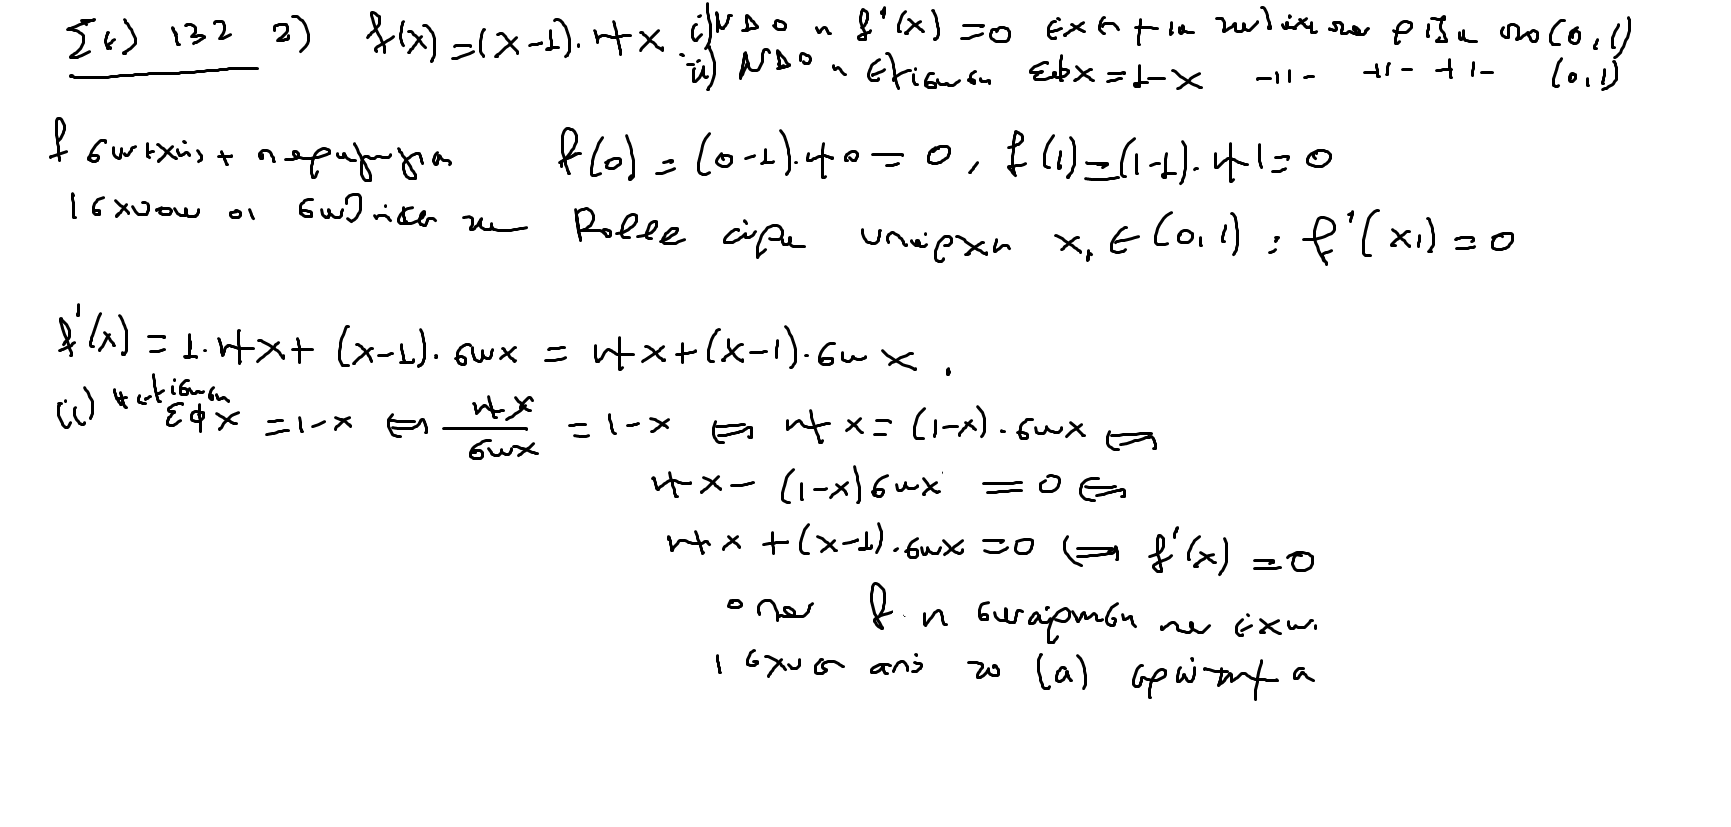 Σελ 132 2) f(x)=(x-1)·ημx i) ΝΔΟ η f'(x)=0 έχει μια τουλάχιστον ρίζα στο (0,1)
ii) ΝΔΟ η εξίσωση εφx=1-x -11- -11- -11- (0,1)
f συνεχής + παραγωγ/μη f(0)=(0-1)·ημ0=0, f(1)=(1-1)·ημ1=0
Ισχύουν οι συνθήκες του Rolle άρα υπάρχει x₁∈(0,1): f'(x₁)=0
f'(x)=1·ημx+(x-1)·συνx=ημx+(x-1)·συνx.
ii) Η εξίσωση εφx=1-x ⇔ ημx/συνx=1-x ⇔ ημx=(1-x)·συνx ⇔
ημx-(1-x)συνx=0 ⇔
ημx+(x-1)·συνx=0 ⇔ f'(x)=0
όπου f η συνάρτηση που έχω.
Ισχύει από το (α) ερώτημα